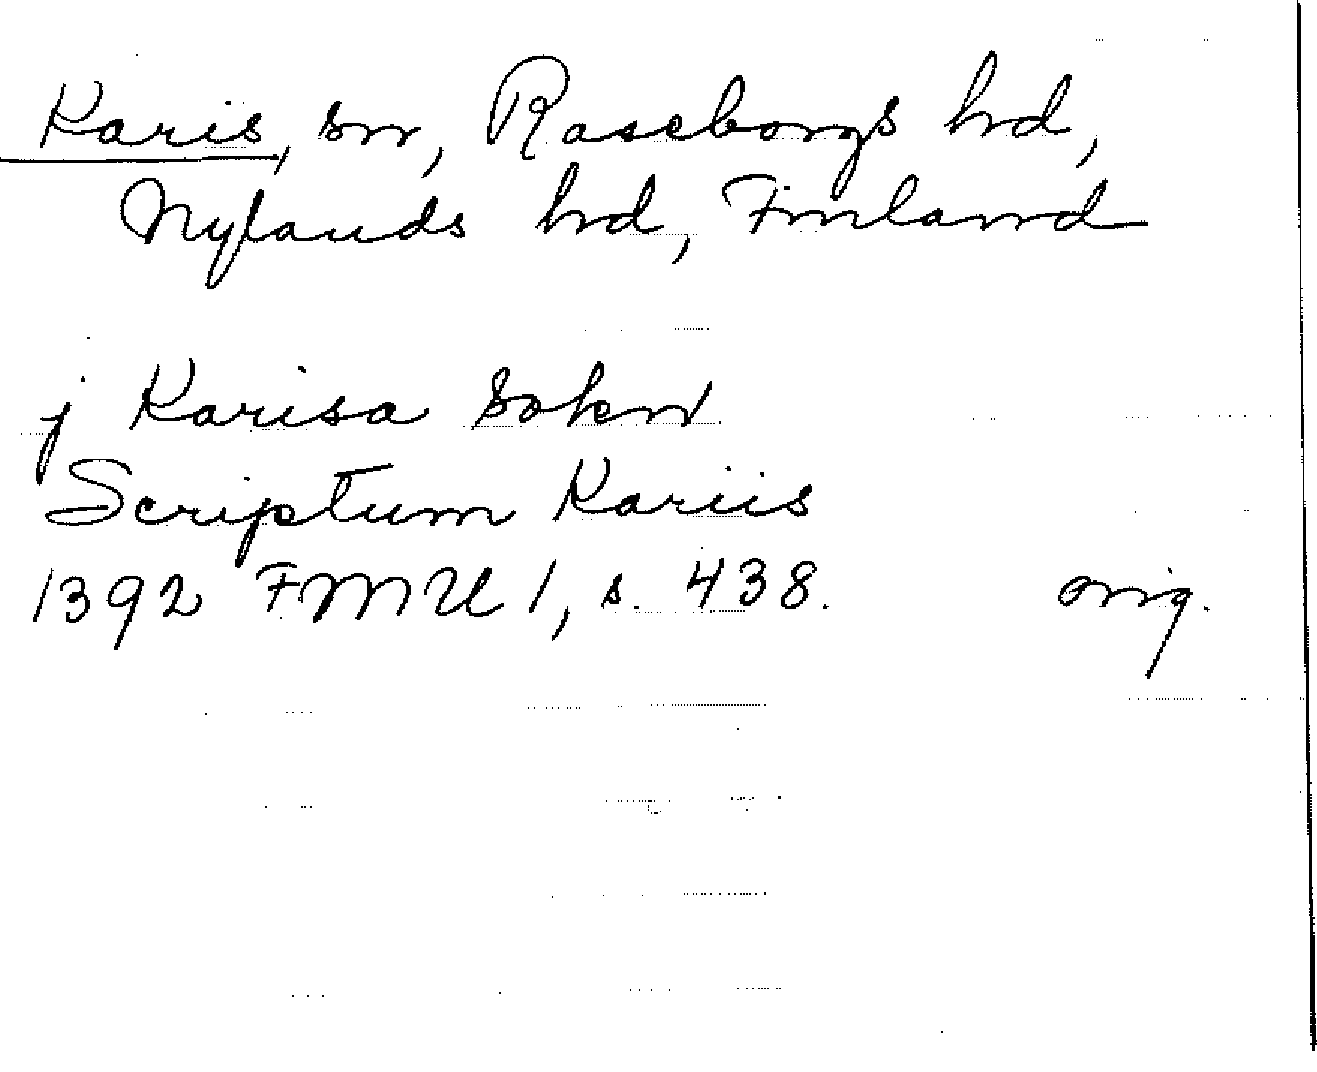 Karis, sn, Raseborgs hd,
Nylands hd, Finland
j Karisa Sokn
Scriptum Kariis
1392 FMU 1, s. 438. orig.